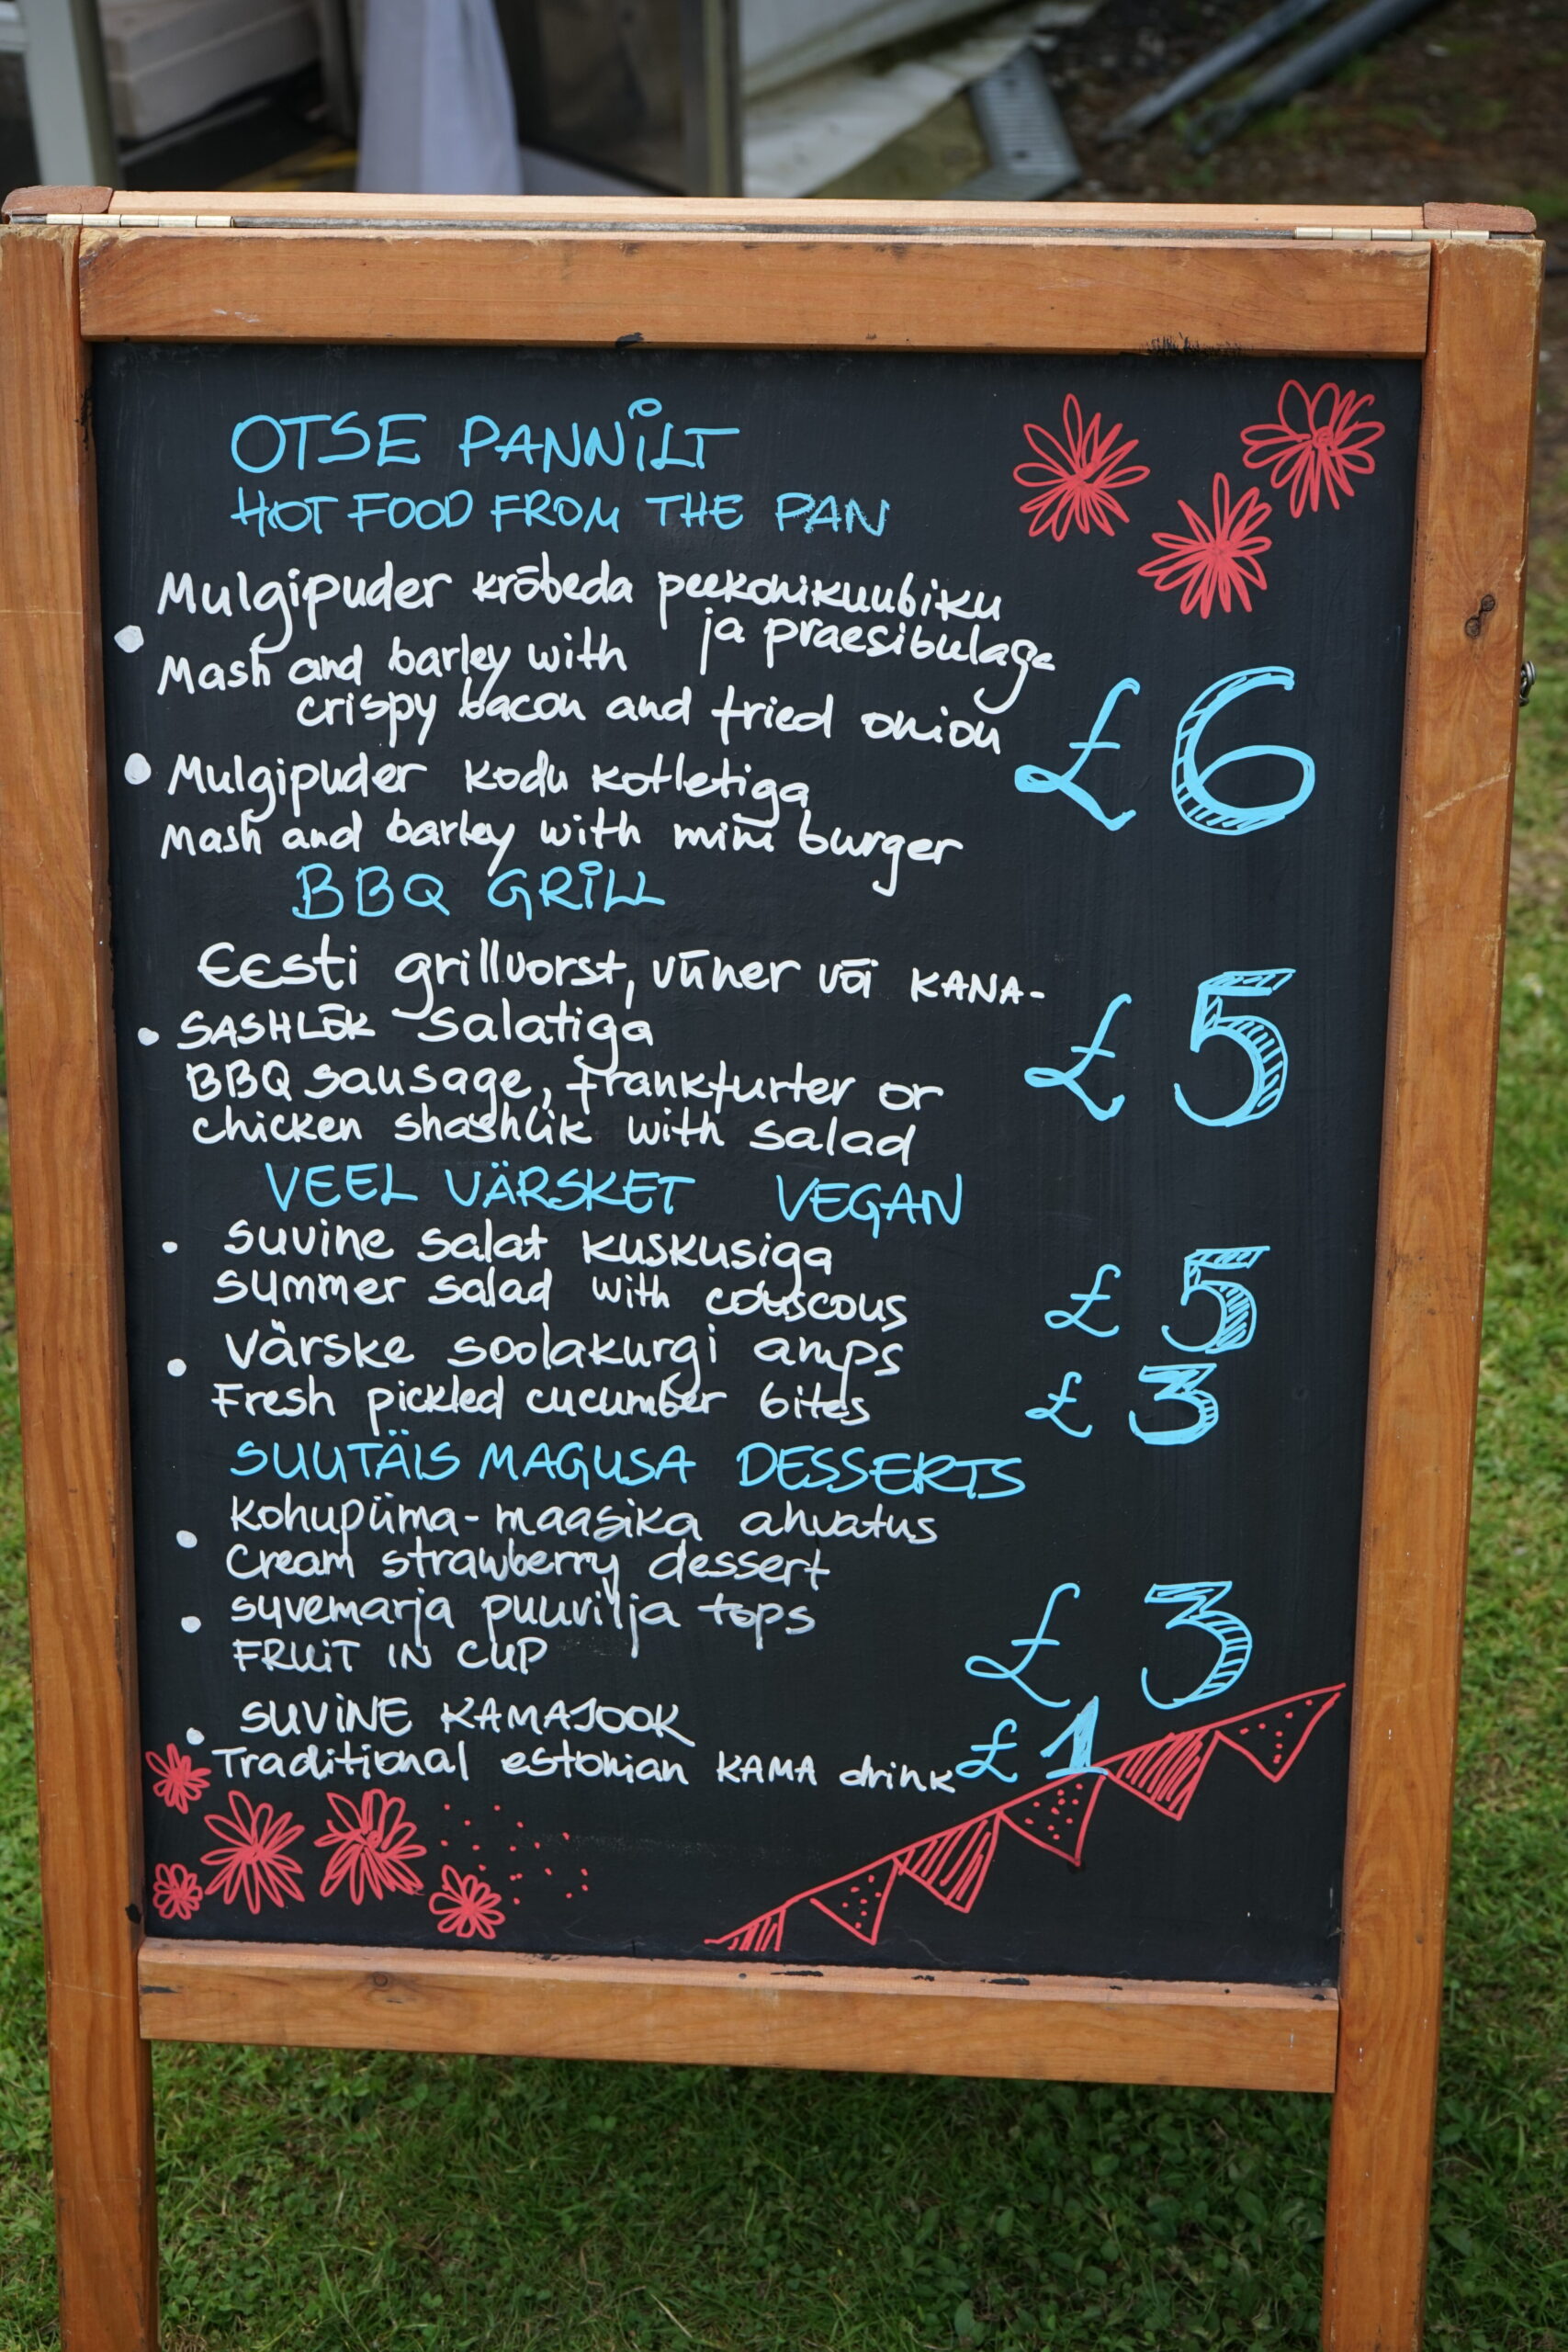 OTSE PANNILT
HOT FOOD FROM THE PAN
• Mulgipuder krõbeda peekonikuubiku
ja praesibulaga
Mash and barley with
crispy bacon and fried onion
£6
• Mulgipuder kodu kotletiga
Mash and barley with mini burger
BBQ GRILL
Eesti grillvorst, viiner või KANA-
• SASHLÕK salatiga
£5
BBQ sausage, frankfurter or
chicken shashlik with salad
VEEL VÄRSKET VEGAN
• suvine salat kuskusiga
summer salad with couscous
£5
• värske soolakurgi amps
Fresh pickled cucumber bites
£3
SUUTÄIS MAGUSA DESSERTS
• kohupiima-maasika ahvatus
Cream strawberry dessert
• suvemarja puuvilja tops
FRUIT IN CUP
£3
• SUVINE KAMAJOOK
Traditional estonian KAMA drink £1